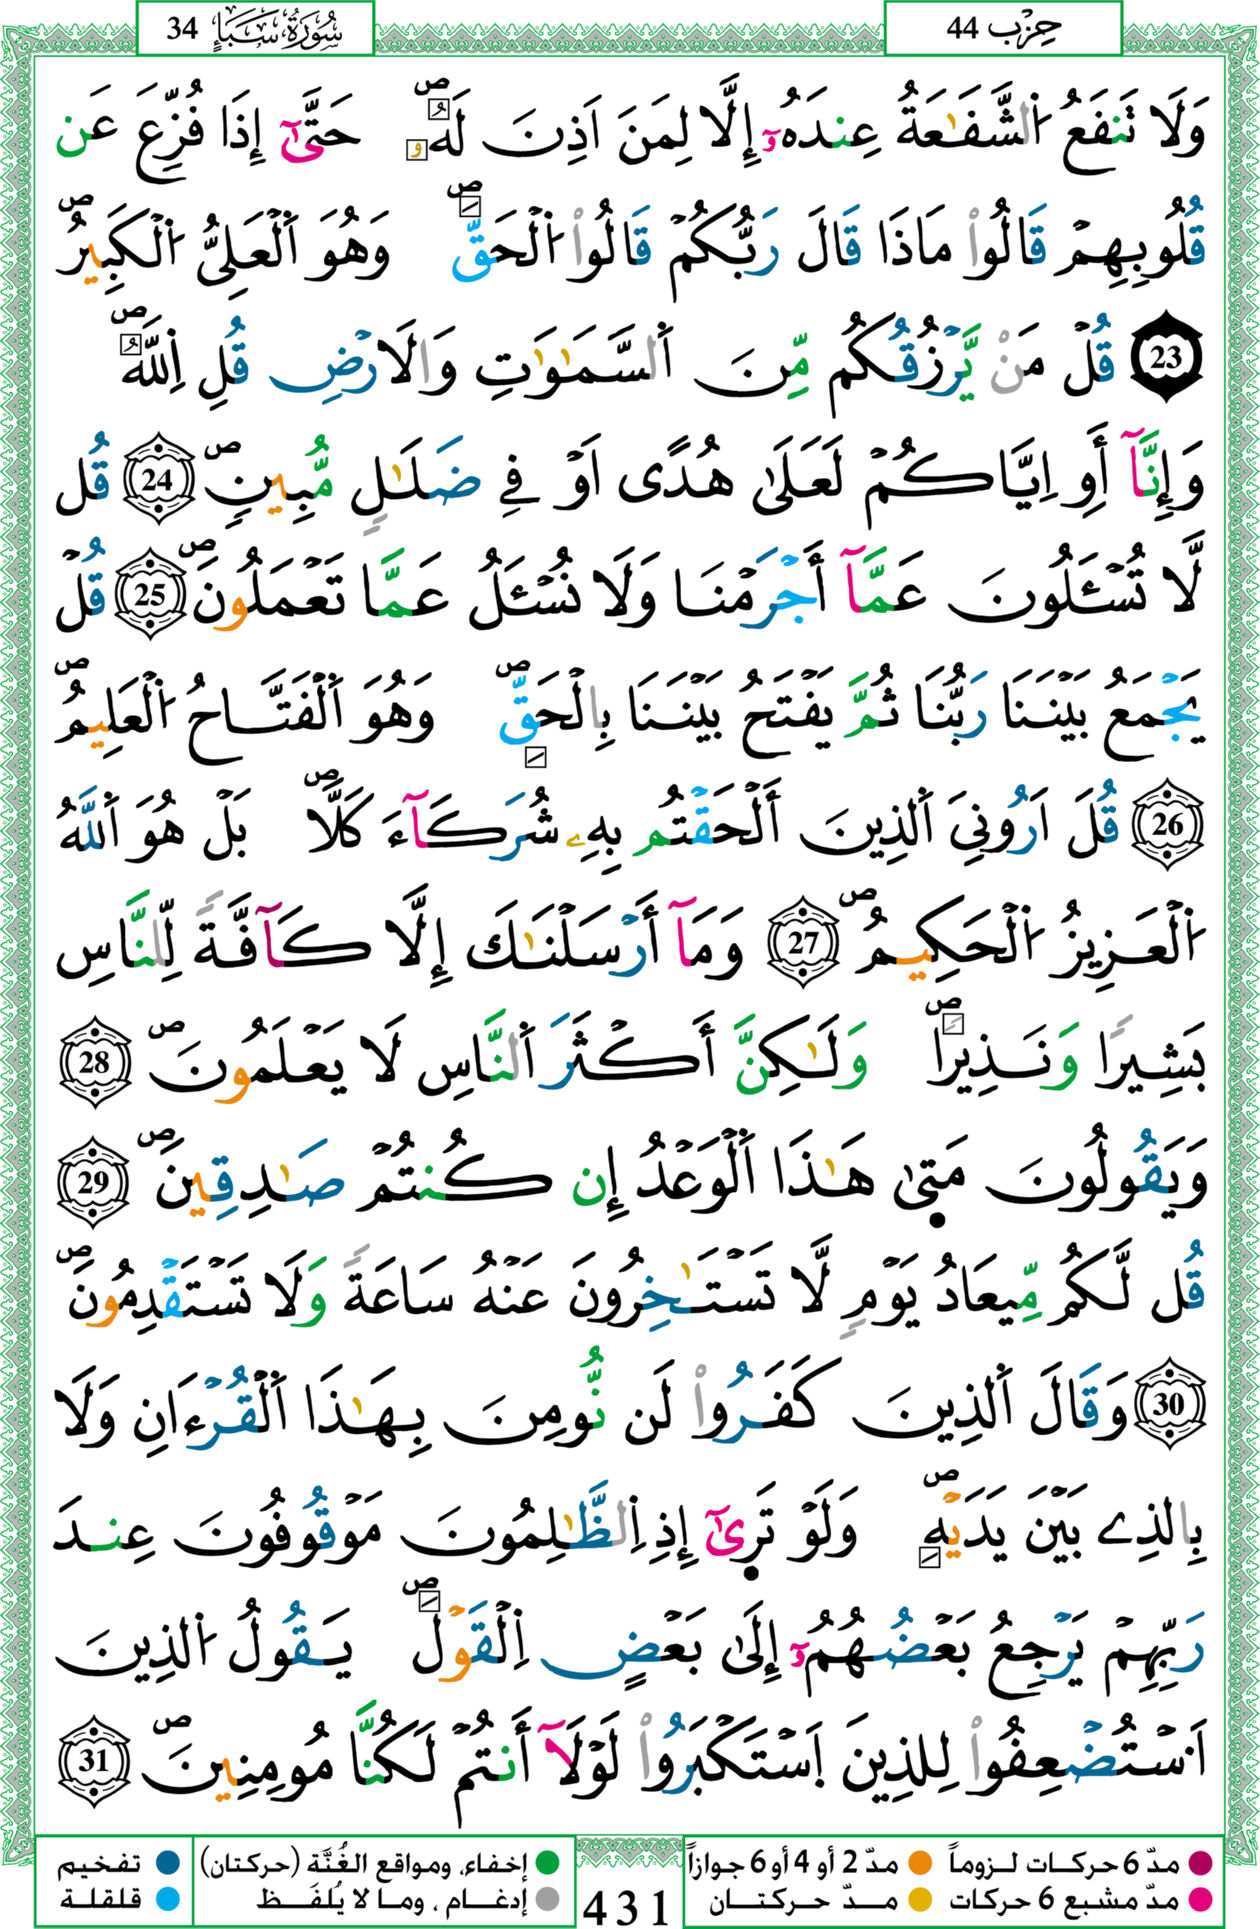 حِزْب 44
سُورَةُ سَبَإٍ 34
وَلَا تَنفَعُ اُ۬لشَّفَٰعَةُ عِندَهُۥٓ إِلَّا لِمَنَ اَذِنَ لَهُۥۖ حَتَّىٰٓ إِذَا فُزِّعَ عَن
قُلُوبِهِمْ قَالُواْ مَاذَا قَالَ رَبُّكُمْ قَالُواْ اُ۬لْحَقَّۖ وَهُوَ اَ۬لْعَلِىُّ اُ۬لْكَبِيرُۖ
23 قُلْ مَنْ يَّرْزُقُكُم مِّنَ اَ۬لسَّمَٰوَٰتِ وَالَارْضِ قُلِ اِ۬للَّهُۖ
وَإِنَّآ أَوِ اِيَّاكُمْ لَعَلَىٰ هُدًى اَوْ فِے ضَلَٰلٍ مُّبِينٍۖ 24 قُل
لَّا تُسْـَٔلُونَ عَمَّآ أَجْرَمْنَا وَلَا نُسْـَٔلُ عَمَّا تَعْمَلُونَۖ 25 قُلْ
يَجْمَعُ بَيْنَنَا رَبُّنَا ثُمَّ يَفْتَحُ بَيْنَنَا بِالْحَقِّۖ وَهُوَ اَ۬لْفَتَّاحُ اُ۬لْعَلِيمُۖ
26 قُلَ اَرُونِيَ اَ۬لذِينَ أَلْحَقْتُم بِهِۦ شُرَكَآءَ كَلَّاۖ بَلْ هُوَ اَ۬للَّهُ
اُ۬لْعَزِيزُ اُ۬لْحَكِيمُۖ 27 وَمَآ أَرْسَلْنَٰكَ إِلَّا كَآفَّةً لِّلنَّاسِ
بَشِيرًا وَنَذِيرًاۖ وَلَٰكِنَّ أَكْثَرَ اَ۬لنَّاسِ لَا يَعْلَمُونَۖ 28
وَيَقُولُونَ مَتَىٰ هَٰذَا اَ۬لْوَعْدُ إِن كُنتُمْ صَٰدِقِينَۖ 29
قُل لَّكُم مِّيعَادُ يَوْمٍ لَّا تَسْتَٰٔخِرُونَ عَنْهُ سَاعَةً وَلَا تَسْتَقْدِمُونَۖ
30 وَقَالَ اَ۬لذِينَ كَفَرُواْ لَن نُّومِنَ بِهَٰذَا اَ۬لْقُرْءَانِ وَلَا
بِالذِے بَيْنَ يَدَيْهِۖ وَلَوْ تَرَىٰٓ إِذِ اِ۬لظَّٰلِمُونَ مَوْقُوفُونَ عِندَ
رَبِّهِمْ يَرْجِعُ بَعْضُهُمُۥٓ إِلَىٰ بَعْضٍ اِ۬لْقَوْلَۖ يَقُولُ اُ۬لذِينَ
اَ۟سْتُضْعِفُواْ لِلذِينَ اَ۪سْتَكْبَرُواْ لَوْلَآ أَنتُمْ لَكُنَّا مُومِنِينَۖ 31
مدّ 6 حركات لـزوماً مدّ 2 أو 4 أو 6 جوازاً
مدّ مشبع 6 حركات مــدّ حركتــان
431
إخفاء، ومواقع الغُنَّة (حركتان) تفخيم
إدغـام ، ومـا لا يُلفَـظ قلقلة